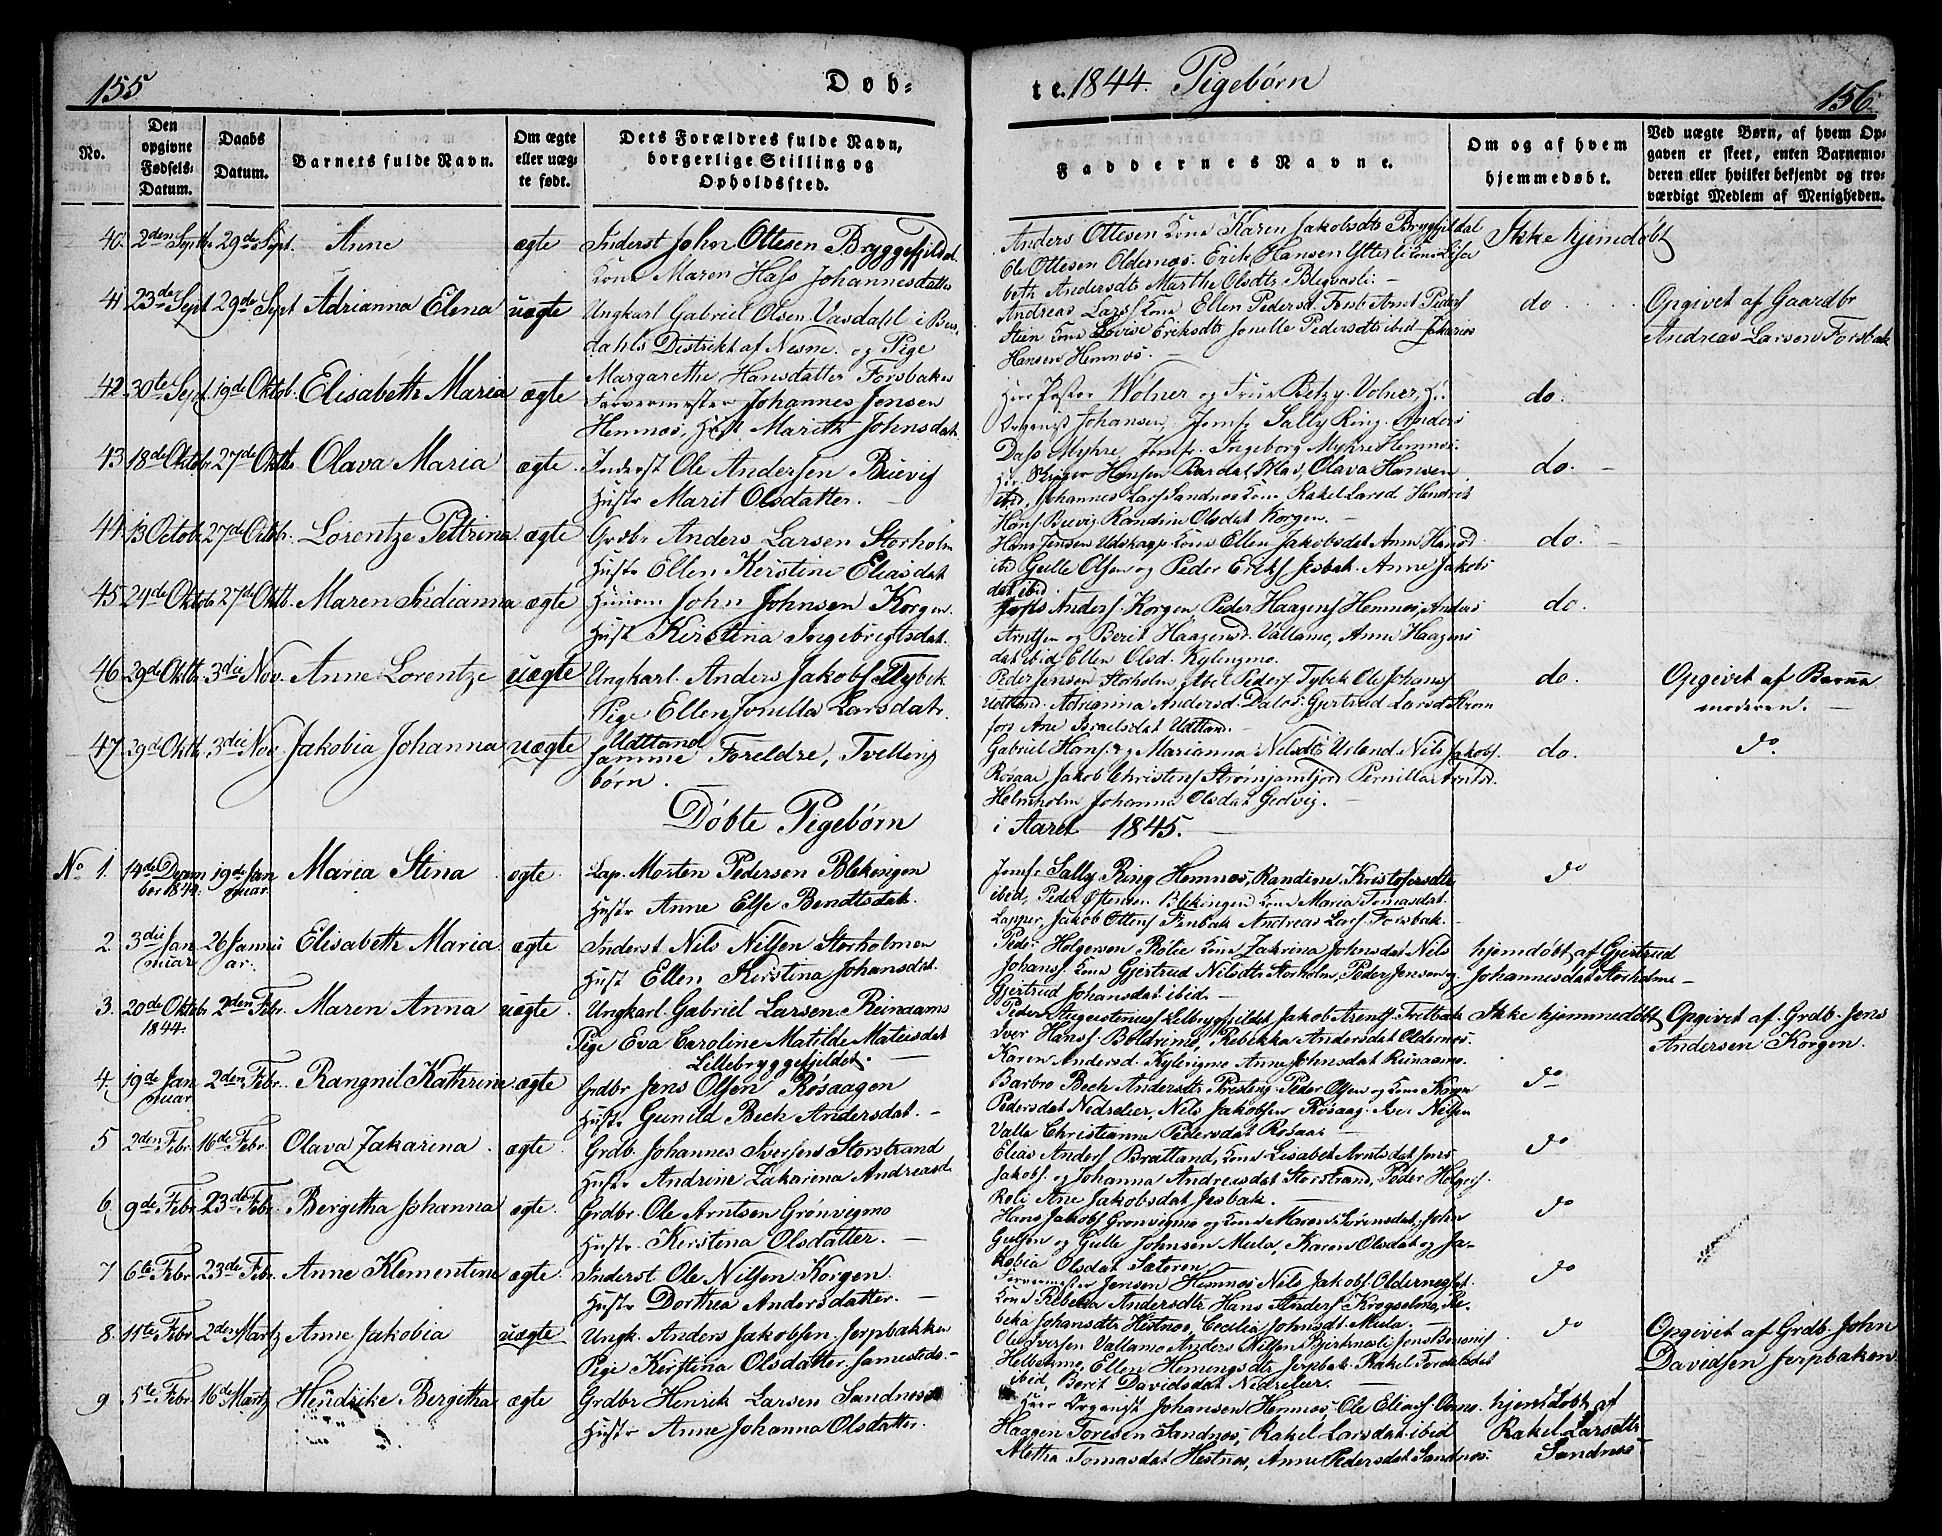 155
Døb-
te. 1844. Pigebørn
156.
No.
Den opgivne Fødsels-Datum.
Daabs Datum.
Barnets fulde Navn.
Om ægte eller uæg-te født.
Dets Forældres fulde Navn, borgerlige Stilling og Opholdssted.
Faddernes Navne.
Om og af hvem hjemmedøbt.
Ved uægte Børn, af hvem Op-gaven er skeet, enten Barnemo-deren eller hvilket bekjendt og tro-værdigt Medlem af Menigheden.
40. 2den Septbr 29de Sept. Anne ægte Inderst John Ottesen Bryggefjeldet
Kone Maren Hass Johannesdatter
Anders Ottesen Kone Karen Jakobsdtr Bryggfjeldal
Ole Ottesen Oldernæs. Erik Hansen Ytterli Kone Lisa
beth Andersdtr Marthe Olsdtr Bleqvasli. -
Ikke hjemdøbt
41. 23de Sept 29de Sept Adrianna Elena uægte Ungkarl Gabriel Olsen Vasdahl i Bus-
dahls Distrikt af Nesne. og Pige
Margarethe Hansdatter Forsbakes
Andreas Lars Kone Ellen Pedersd. Forsb. Arnt Peders
Stien Kone Lovise Eriksdtr Jonille Pedersdtr ibid Johanes
Hansen Hemnæs. -
do.
Opgivet af Gaardbr
Andreas Larsen Forsbak
42. 30te Sept. 19de Oktob. Elisabeth Maria ægte Farvermester Johannes Jensen
Hemnæs, Hust. Marith Johnsdat.
Herr Pastor Wolner og Frue Betzy Volner, Hr.
Organist Johansen, Jomfr Sally Ring. Anders
Dass Myhre, Jomfr. Ingeborg Myhre Hemnæs.
do.
43. 18de Oktobr 27de Oktbr Olava Maria ægte Inderst Ole Andersen Buevig
Hustr Marit Olsdatter. -
Hansen Bardal, Olava Hansen
ibid, Johannes Lars Sandnæs Kone Rakel Larsd Hendrik
Hans Buvig Randine Olsdat Korgen. -
do.
44. 13 Octobr 27de Octbr. Lorentze Pettrina ægte Grdbr Anders Larsen Storholm
Hustr Ellen Kerstine Eliasdat
Hans Jensen Udskarp Kone Ellen Jakobsdat Anne Hansd
ibid Gulle Olsen og Peder Eriks Jesbak. Anne Jakobs
dat ibid.
do.
45. 24de Oktobr 27de Oktb. Maren Indianna ægte John Johnsen Korgen.
Hust Kirstina Ingebrigtsdat.
Anders Korgen Peder Haagens Hemnæs, Anders
Arntsen og Berit Haagensd. Vallamo, Anne Haagens
dat ibid Ellen Olsd. Kylingmo.
do.
46. 29de Oktb. 3die Nov. Anne Lorentze uægte Ungkarl. Anders Jakobs Tybek
Pige Ellen Jonella Larsdatr.
Udtland
Peder Jensen Storholm, Abel Peders Tybek Ole Johans
Udtland. Adrianna Andersd. Dalos. Gjertrud Larsd Strom
fors Ane Israelsdat Udtland. -
do.
Opgivet af Barne
moderen. -
47. 29de Oktb. 3die Nov. Jakobia Johanna uægte samme Foreldre, Tvelling
børn.
Gabriel Hans og Marianna Nelsdtr Urland. Nils Jakobs.
Røsaae Jakob Christens Strømjamfjord Pernilla Arntsd.
Helmholm Johanna Olsdat Gedvig. -
do.
do.
Døbte Pigebørn
i Aaret 1845. -
No 1. 14de Decem
ber 1844. 19de Jan
nuar. Maria Stina ægte. Lap. Morten Pedersen Blekingen
Hustr Anne Else Bendtsdat.
Jomfr Sally Ring Hemnæs, Randine Kristofersdtr
ibid, Peder Østensen Blekingen Kone Maria Tomasdat.
Lapper, Jakob Ottens Finbak Andreas Lars Forsbak. -
do
2. 3die Jan
nuar. 26 Janu
ar. Elisabeth Maria ægte Inderst Nils Nilsen Storholmen
Hust Ellen Kirstina Johansdat.
Peder Holgersen Rølie Kone Zakrina Johnsdat Nils
Johans Kone Gjertrud Nilsdtr Storholm, Peder Jensen og
Gjertrud Johansdat ibid. -
hjemdøbt af Gjertrud
Johannesdat Storholm -
3. 20de Oktobr
1844. 2den Febr. Maren Anna uægte Ungkarl Gabriel Larsen Reinaamo
Pige Eva Caroline Matilde Mateusdat
Lillebryggefjeldet. -
Peder Augustinius Lelbrygfjeldet Jakob Arents Fretbak
Iver Hans Boldremo, Rebekka Andersdat Oldernæs.
Karen Andersd. Kylengmo Anne Johnsdat Reinaamo.
Ikke hjemmedøbt
Opgivet af Grdb. Jens
Andersen Korgen.
4. 19de Jan
nuar. 2den Febr. Rangnil Kathrina ægte Grdbr Jens Olsen Røsaagen
Hustr. Gunild Bech Andersdat. -
Barbro Bech Andersdtr Presteng. Peder Olsen og Kone Karen
Pedersdat Nedreleer, Nils Jakobsen Røsaag. Iver Nilsen
Valla Christianna Pedersdat Røsaae -
do
5 2den Febr. 16de Febr. Olava Zakarina. ægte. Grdb. Johannes Iversens Storstrand
Hustr Andrine Zakarina Andreasd.
Elias Anders Bratland, Kone Lisabet Arntsdat Jens
Jakobs. og Johanna Andreasdat Storstrand, Peder Holgers.
Røli Ane Jakobsdat Jesbak. -
do
6. 9de Febr. 23de Febr. Bergitha Johanna ægte. Grdbr Ole Arntsen Grønvigmo
Hustr. Kerstina Olsdatter. -
Hans Jakobs Grønvigmo og Kone Maren Sørensdat, John
Gulsen og Gulle Johnsen Mula, Karen Olsdat og Ja-
kobia Olsdat Sæteren.
do
7 6te Febr 23de Febr. Anne Klementine ægte. Inderst Ole Nilsen Korgen.
Hustr Dorthea Andersdatter. -
Farvermester Jensen Hemnæs Nils Jakobs. Oldernæs
Kone Rebekka Andersdtr Hans Anders Krogselmo, Re-
beka Johansdtr Hestnæs, Cecilia Johnsdt Mula. -
do
8. 11te Febr. 2den Martz Anne Jakobia uægte Ungk. Anders Jakobsen Jerpbakken
Pige Kerstina Olsdatter. samesteds. -
Ole Iversen Vallamo Anders Nilsen Bjerknæsli Jens Benonis
Helbemo, Ellen Hemingsdtr Jerpbak. Rakel Tordalsdat
ibid, Berit Davidsdat Nedreleer. -
do
Opgivet af Grdb. John
Davidsen Jerpbaken
9. 5te Febr. 16de Martz Hendrike Bergitha ægte Grdbr Henrik Larsen Sandnæs
Hustr Anne Johanna Olsdatter.
Herr Organist Johansen Hemnæs, Ole Elias
Haagen Toresen Sandnæs, Rakel Larsdat ibid
Aletha Tomasdat Hestnæs, Anne Pedersdat Sandnæs.
hjemdøbt af
Rakel Larsdtr
Sandnæs